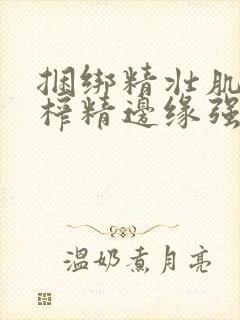 捆绑精壮肌
榨精边缘强
温奶煮月亮